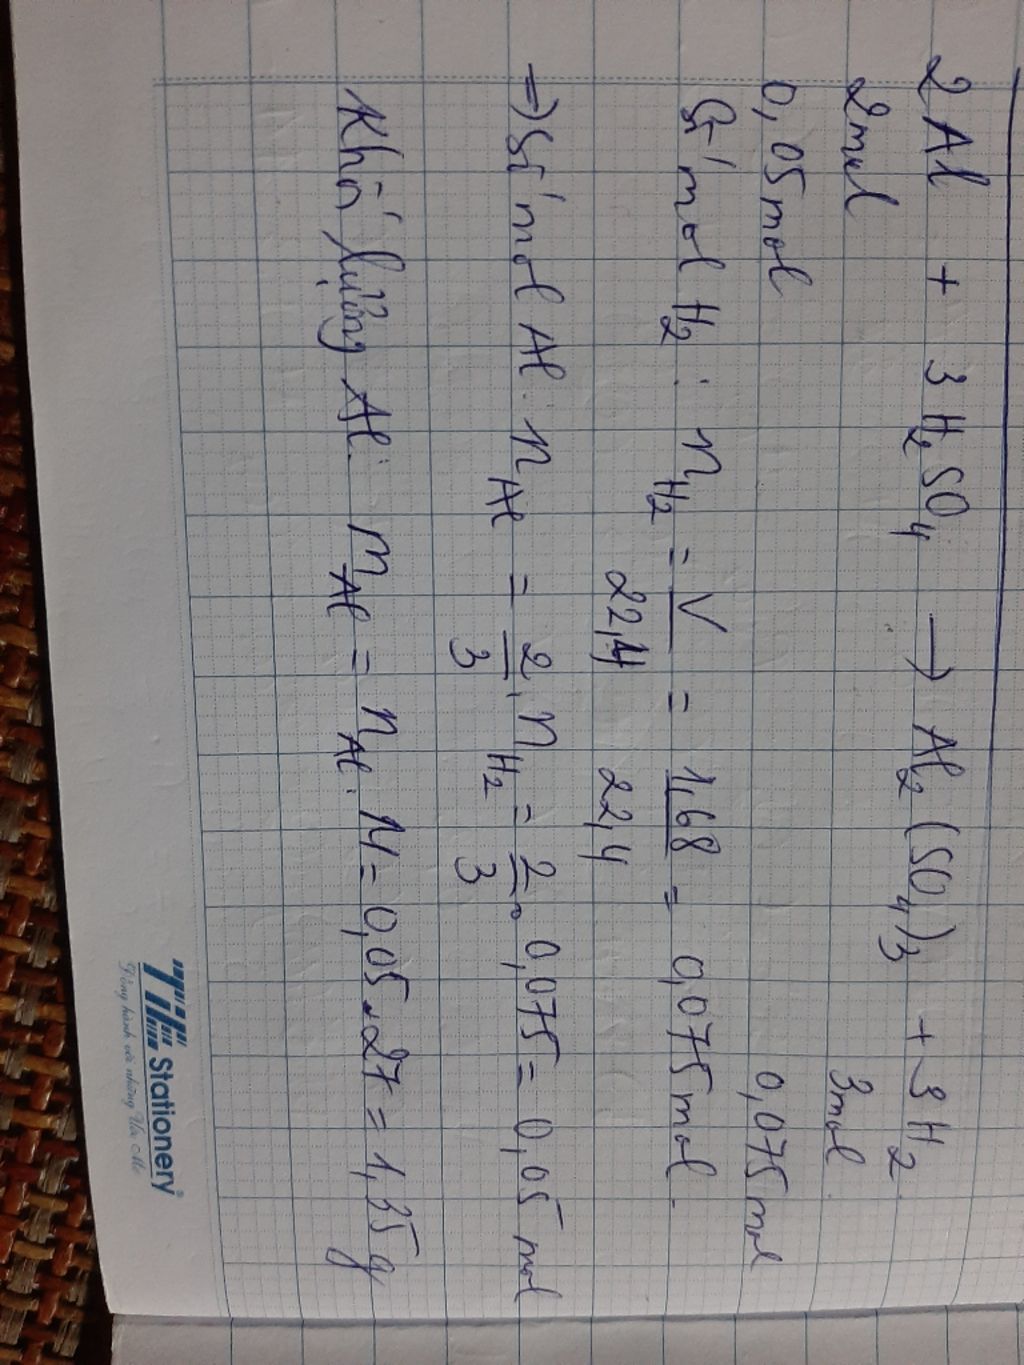 2Al + 3H₂SO₄ → Al₂(SO₄)₃ + 3H₂
2mol 3mol
0,05mol 0,075mol
Số mol H₂: n_H₂ = V/22,4 = 1,68/22,4 = 0,075mol.
=> Số mol Al: n_Al = 2/3 . n_H₂ = 2/3 . 0,075 = 0,05 mol
Khối lượng Al: m_Al = n_Al . M = 0,05 . 27 = 1,35g
TL Stationery
Đồng hành với những Ước Mơ